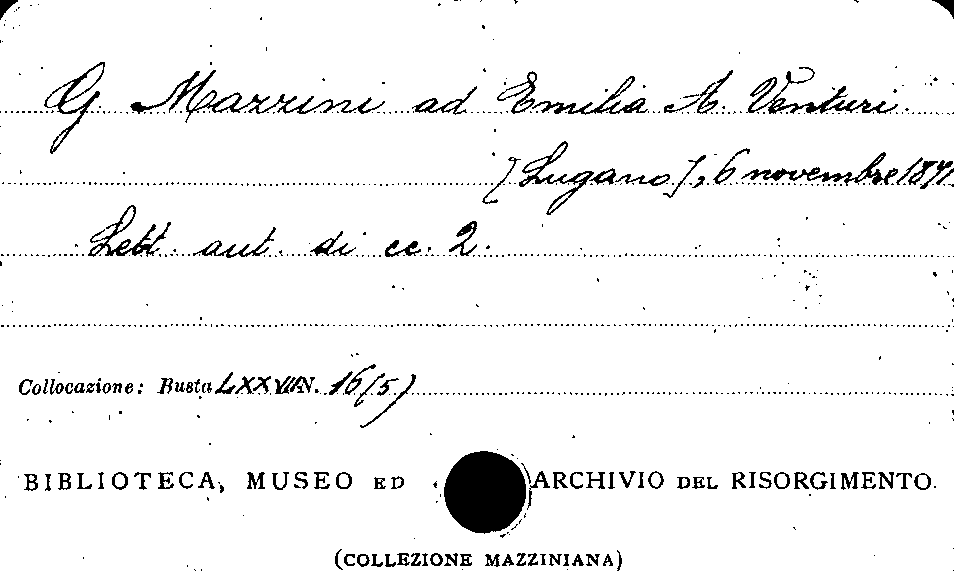 G. Mazzini ad Emilia A. Venturi.
[Lugano], 6 novembre 1871.
Lett. aut. di cc. 2.
Collocazione: Busta LXXVII N. 16(5)
BIBLIOTECA, MUSEO ED ARCHIVIO DEL RISORGIMENTO.
(COLLEZIONE MAZZINIANA)